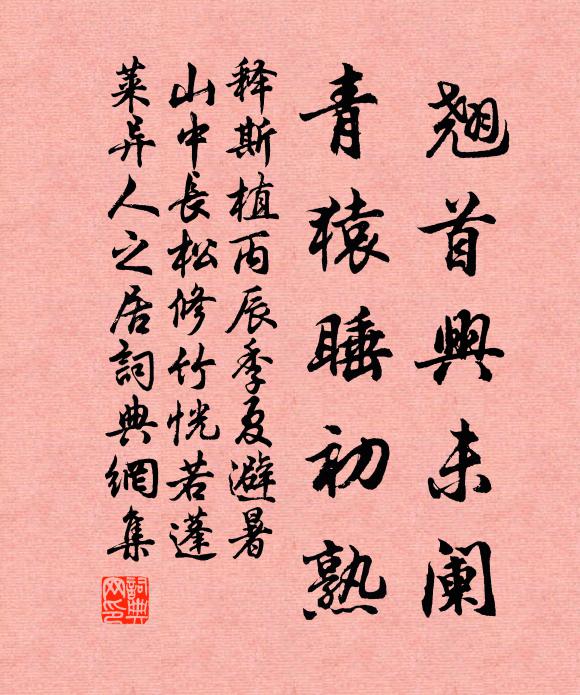 翘首興未阑
青猿睡初熟
释斯植丙辰季夏避暑
山中長松修竹恍若蓬
莱异人之居詞典網集
詞典
网印